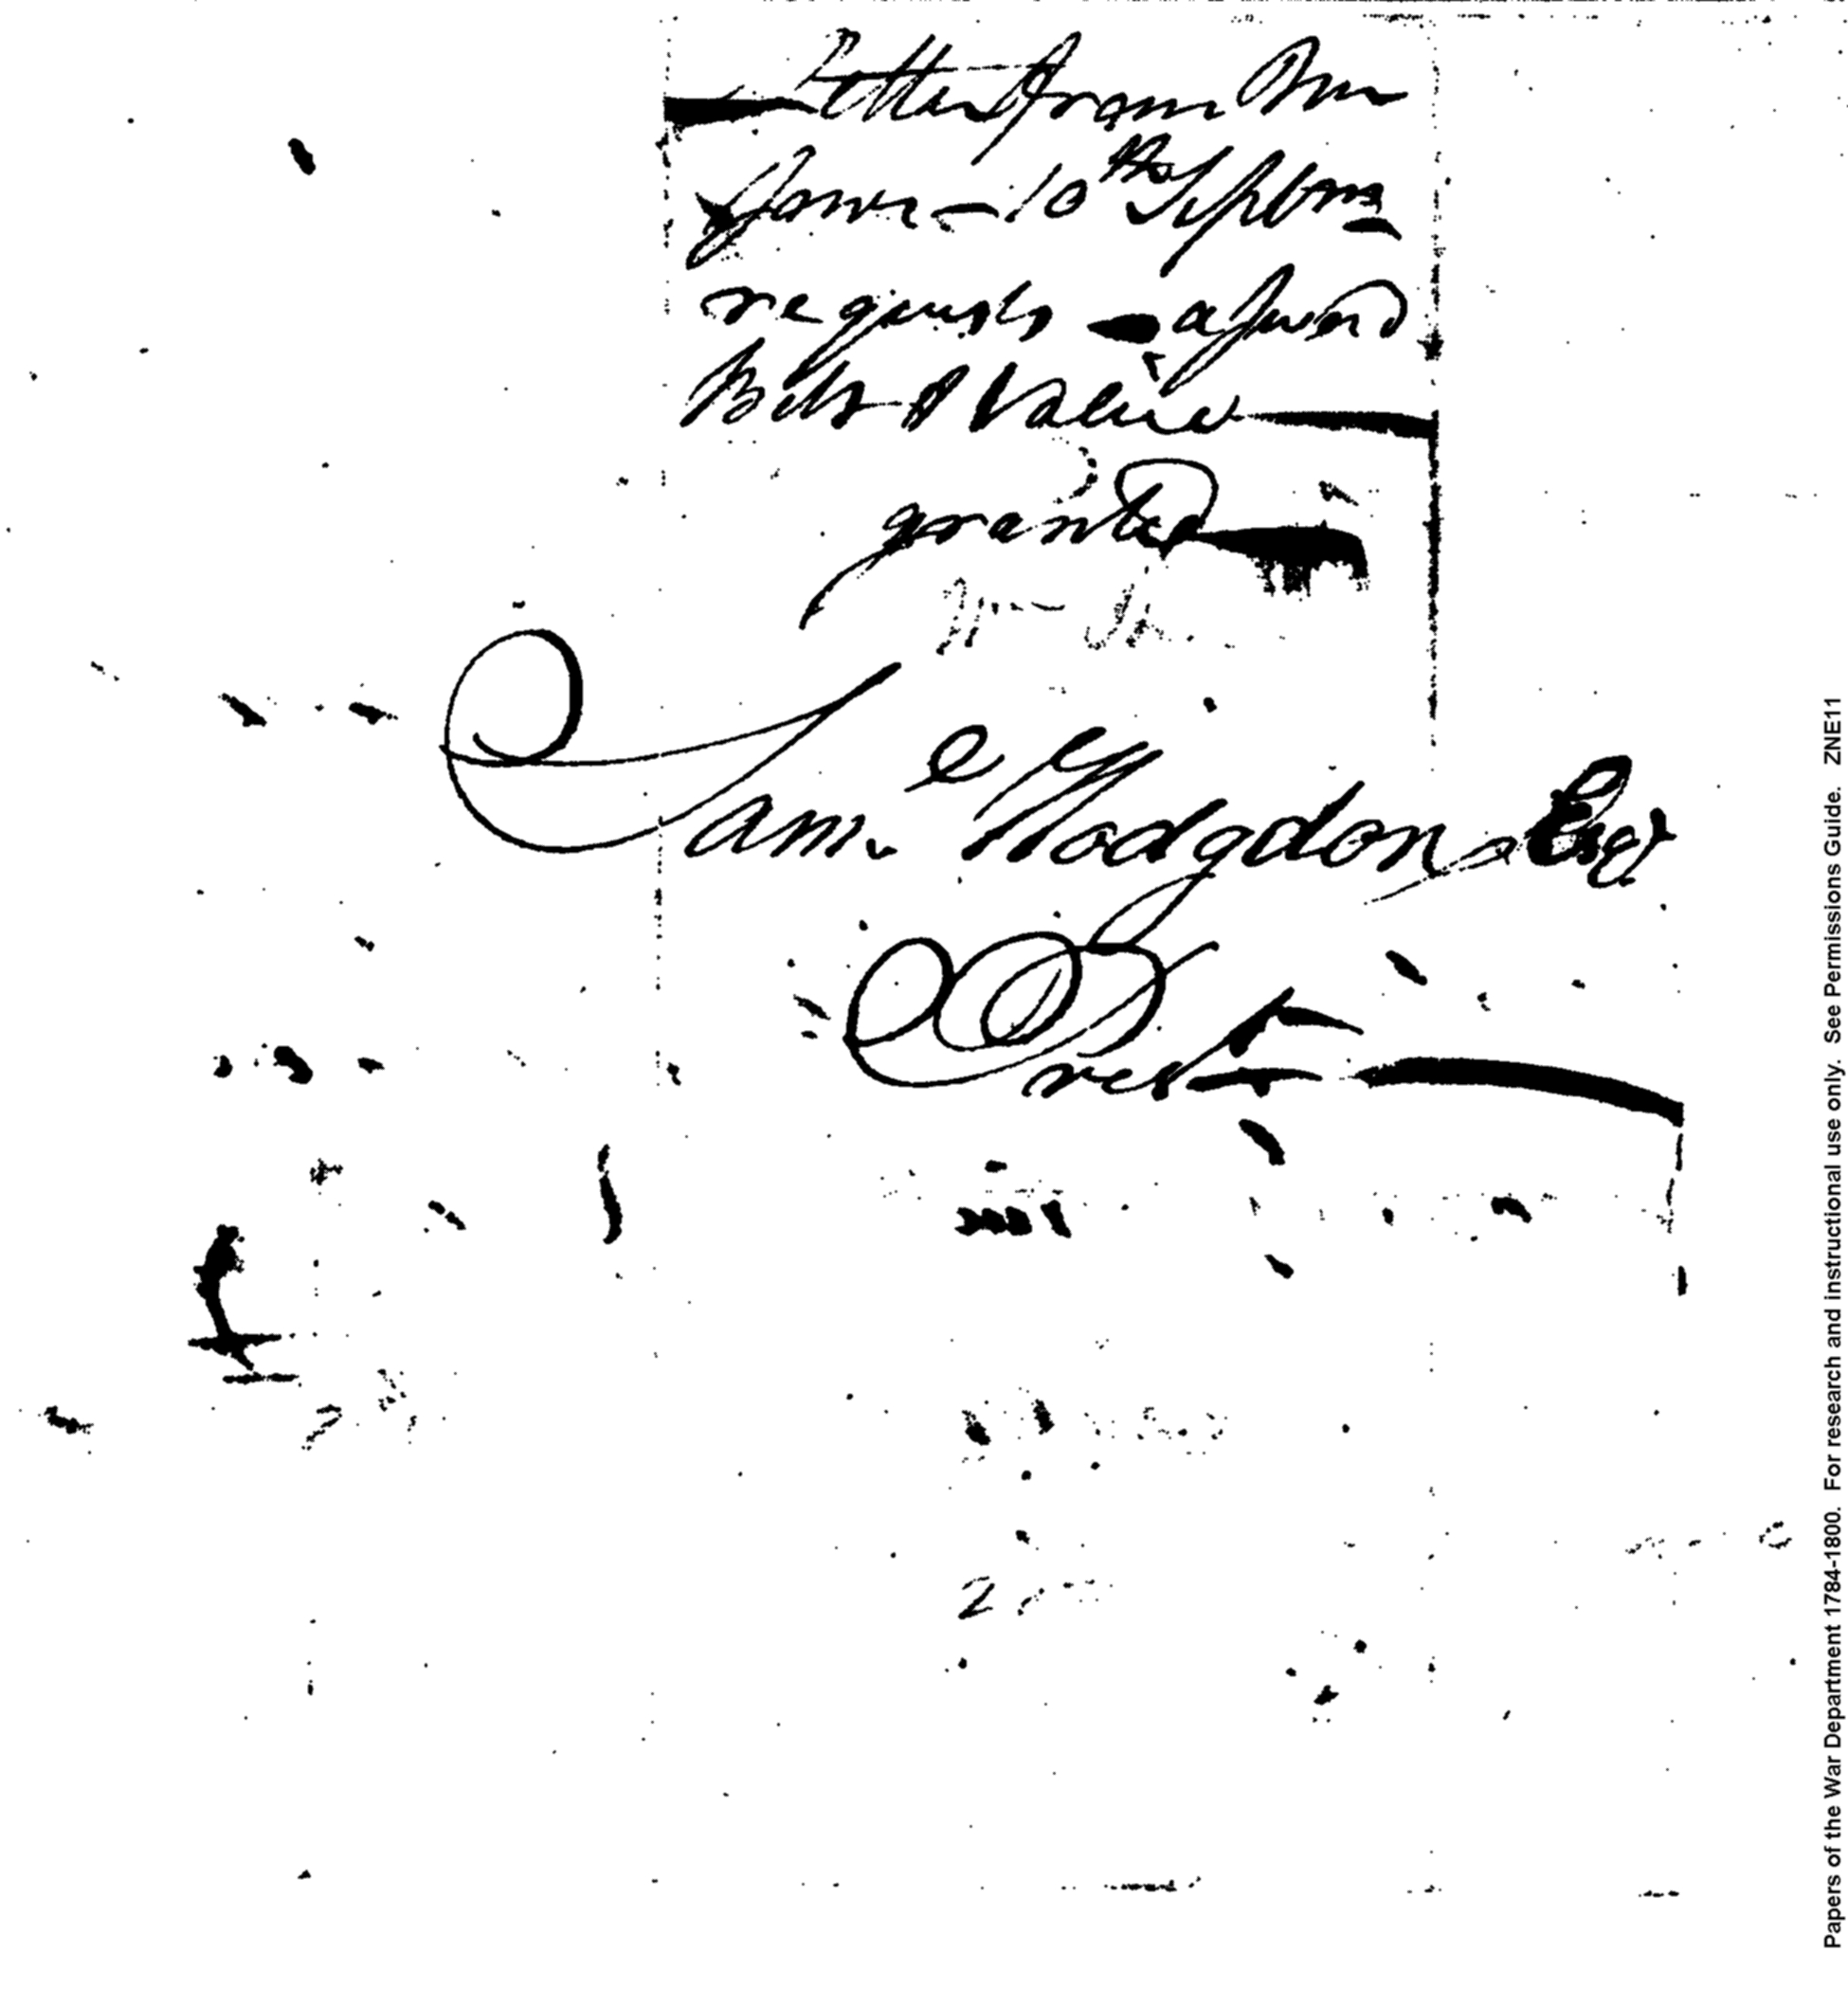 Letter from Mr
Jones – 10th Septem
requests a sword
Belt & Valice
granted
Saml Hodgdon Esqr
Prest
Papers of the War Department 1784-1800. For research and instructional use only. See Permissions Guide. ZNE11